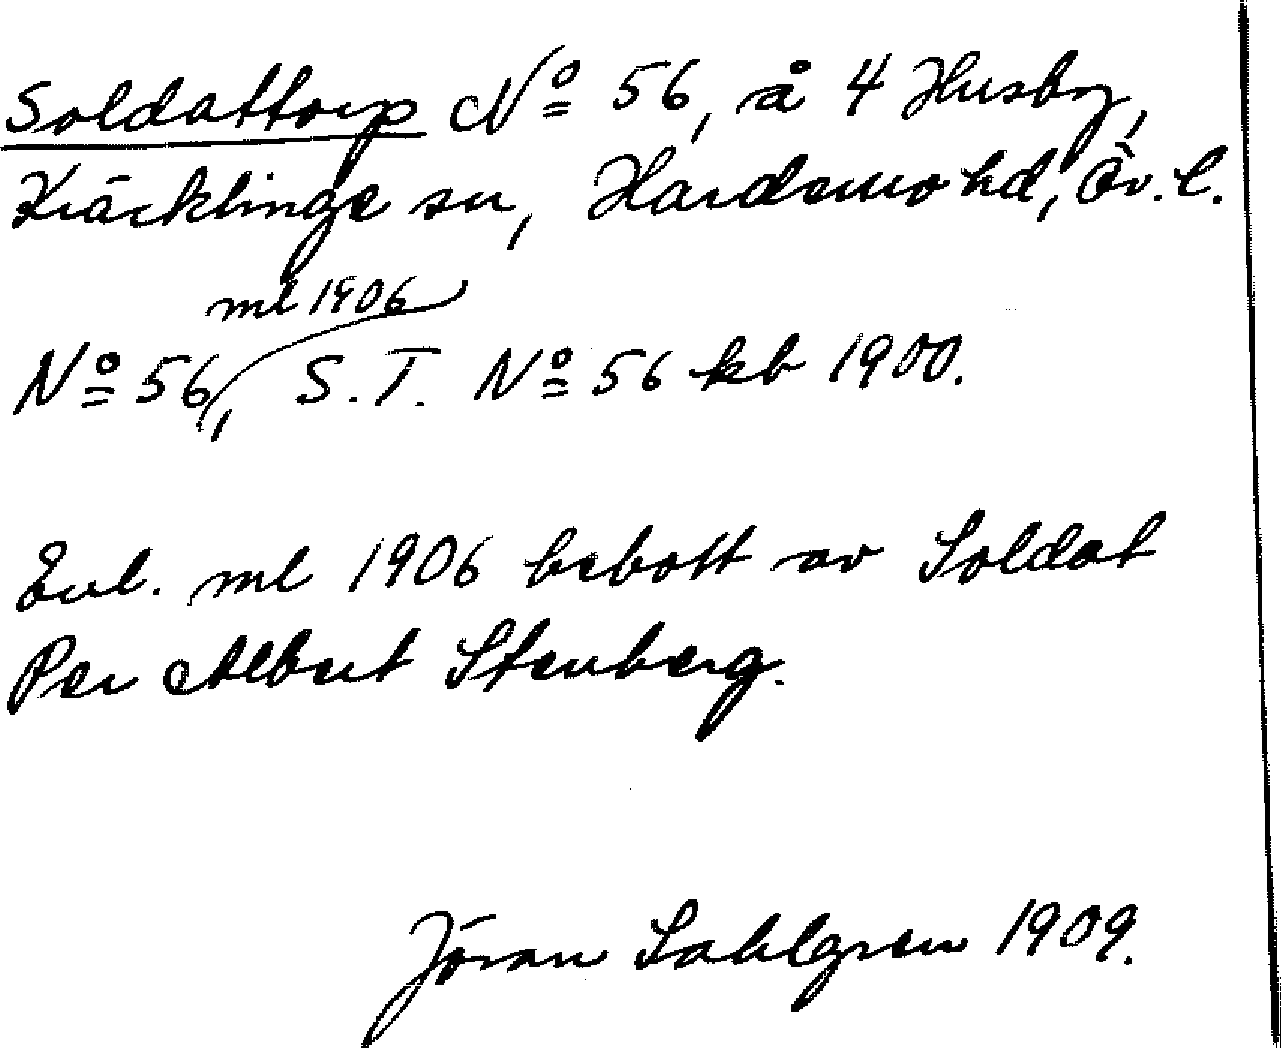 Soldattorp Nº 56, å 4 Husby,
Kräcklinge sn, Hardemo hd, Ör. l.
ml 1906
Nº 56, S.T. Nº 56 kb 1900.
Enl. ml 1906 bebott av Soldat
Per Albert Stenberg.
Jöran Sahlgren 1909.